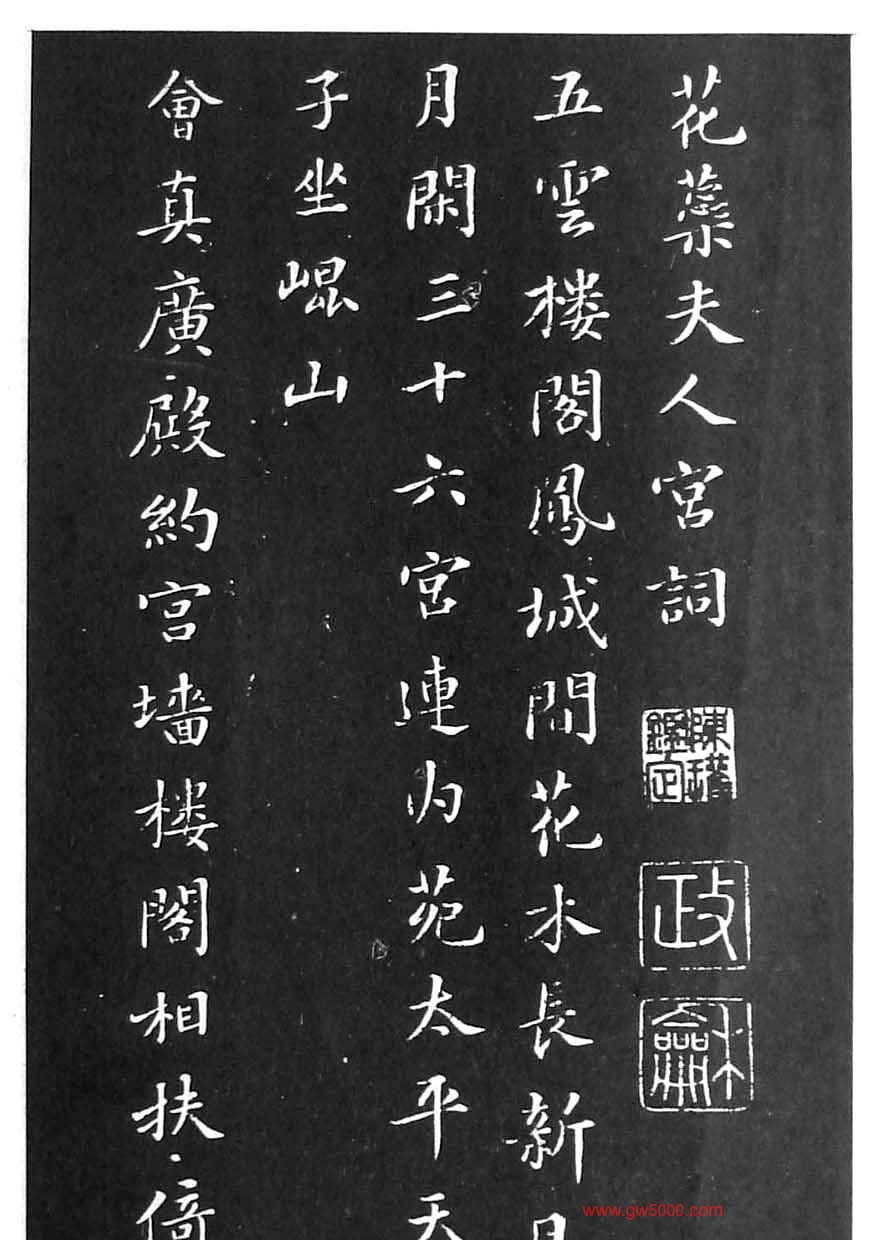 花蘂夫人宮詞
陳瓘鑑定
政
龢
五雲樓閣鳳城間花木長新日
月閑三十六宮連內苑太平天
子坐崐山
會真廣殿約宮墻樓閣相扶倚
www.gw5000.com